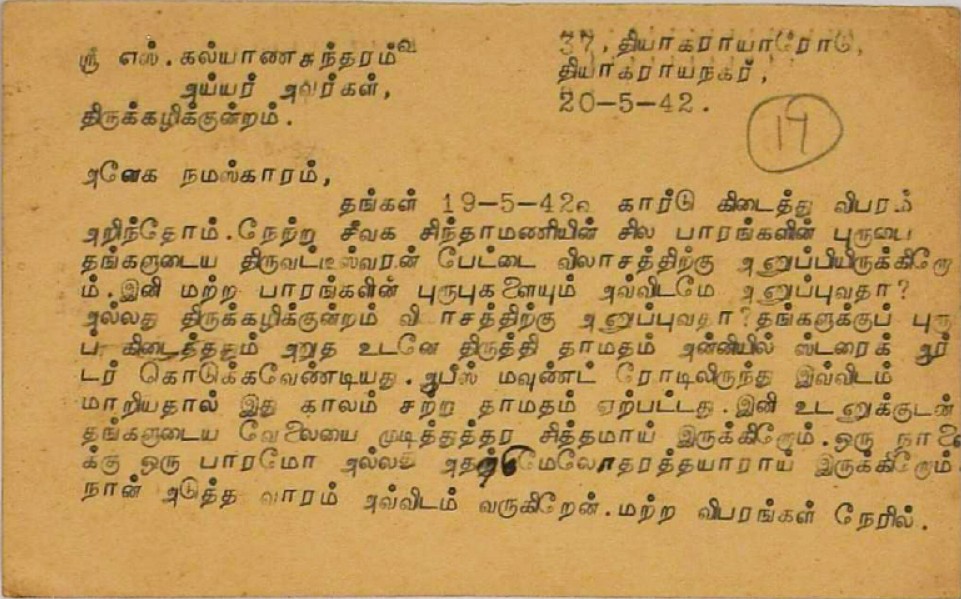 ஸ்ரீ எஸ்.கல்யாணசுந்தரம்வ
அய்யர் அவர்கள்,
திருக்கழிக்குன்றம்.
37,தியாகராயாரோடு,
தியாகராயநகர்,
20-5-42.
19
அனேக நமஸ்காரம்,
தங்கள் 19-5-42௳ கார்டு கிடைத்து விபரம்
அறிந்தோம்.நேற்று சீவக சிந்தாமணியின் சில பாரங்களின் புருபை
தங்களுடைய திருவட்டீஸ்வரன் பேட்டை விலாசத்திற்கு அனுப்பியிருக்கிறோ
ம்.இனி மற்ற பாரங்களின் புருபுகளையும் அவ்விடமே அனுப்புவதா?
அல்லது திருக்கழிக்குன்றம் விலாசத்திற்கு அனுப்புவதா?தங்களுக்குப் புரு
ப் கிடைத்ததும் அறுத உடனே திருத்தி தாமதம் அன்னியில் ஸ்டரைக் ஆர்
டர் கொடுக்கவேண்டியது.ஆபீஸ் மவுண்ட் ரோடிலிருந்து இவ்விடம்
மாறியதால் இது காலம் சற்று தாமதம் ஏற்பட்டது.இனி உடனுக்குடன்
தங்களுடைய வேலையை முடித்துத்தர சித்தமாய் இருக்கிறோம்.ஒரு நாளை
க்கு ஒரு பாரமோ அல்லது இருக்கிறோம்
நான் அடுத்த வாரம் அவ்விடம் வருகிறேன்.மற்ற விபரங்கள் நேரில்.